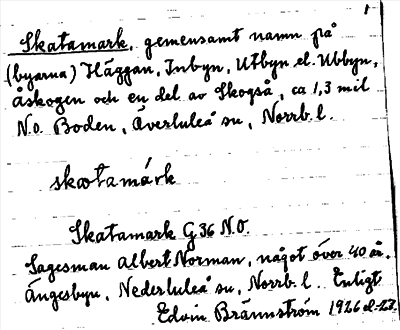 1
Skatamark, gemensamt namn på
(byarna) Häggan, Inbyn, Utbyn el. Ubbyn,
Åskogen och en del av Skogså, ca 1,3 mil
N.O. Boden, Överluleå sn, Norrb. l.
skatamárk
Skatamark G 36 N.O.
Sagesman Albert Norman, något över 40 år.
Ängesbyn, Nederluleå sn, Norrb. l. Enligt
Edvin Brännström 1926 el. 27.